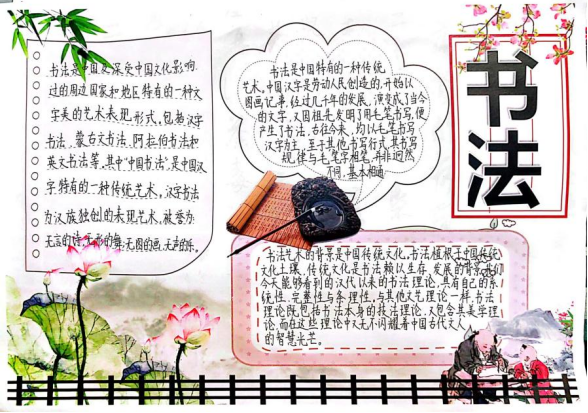 书法是中国及深受中国文化影响
过的周边国家和地区特有的一种文
字美的艺术表现形式，包括汉字
书法、蒙古文书法、阿拉伯书法和
英文书法等，其中"中国书法"，是中国汉
字特有的一种传统艺术，汉字书法
为汉族独创的表现艺术，被誉为：
无言的诗，无形的舞；无图的画，无声的乐。
书法是中国特有的一种传统
艺术。中国汉字是劳动人民创造的，开始以
图画记事，经过几千年的发展，演变成了当今
的文字，又因祖先发明了用毛笔书写，便
产生了书法，古往今来，均以毛笔书写
汉字为主，至于其他书写行式，其书写
规律与毛笔字相笔，并非迥然
不同，基本相通
书法
书法艺术的背景是中国传统文化。书法植根于中国传统
文化土壤，传统文化是书法赖以生存，发展的背景。我们
今天能够看到的汉代以来的书法理论，具有自己的系
统性，完整性与条理性，与其他文艺理论一样，书法
理论既包括书法本身的技法理论，又包含其美学理
论，而在这些理论中又无不闪耀着中国古代文人
的智慧光芒。